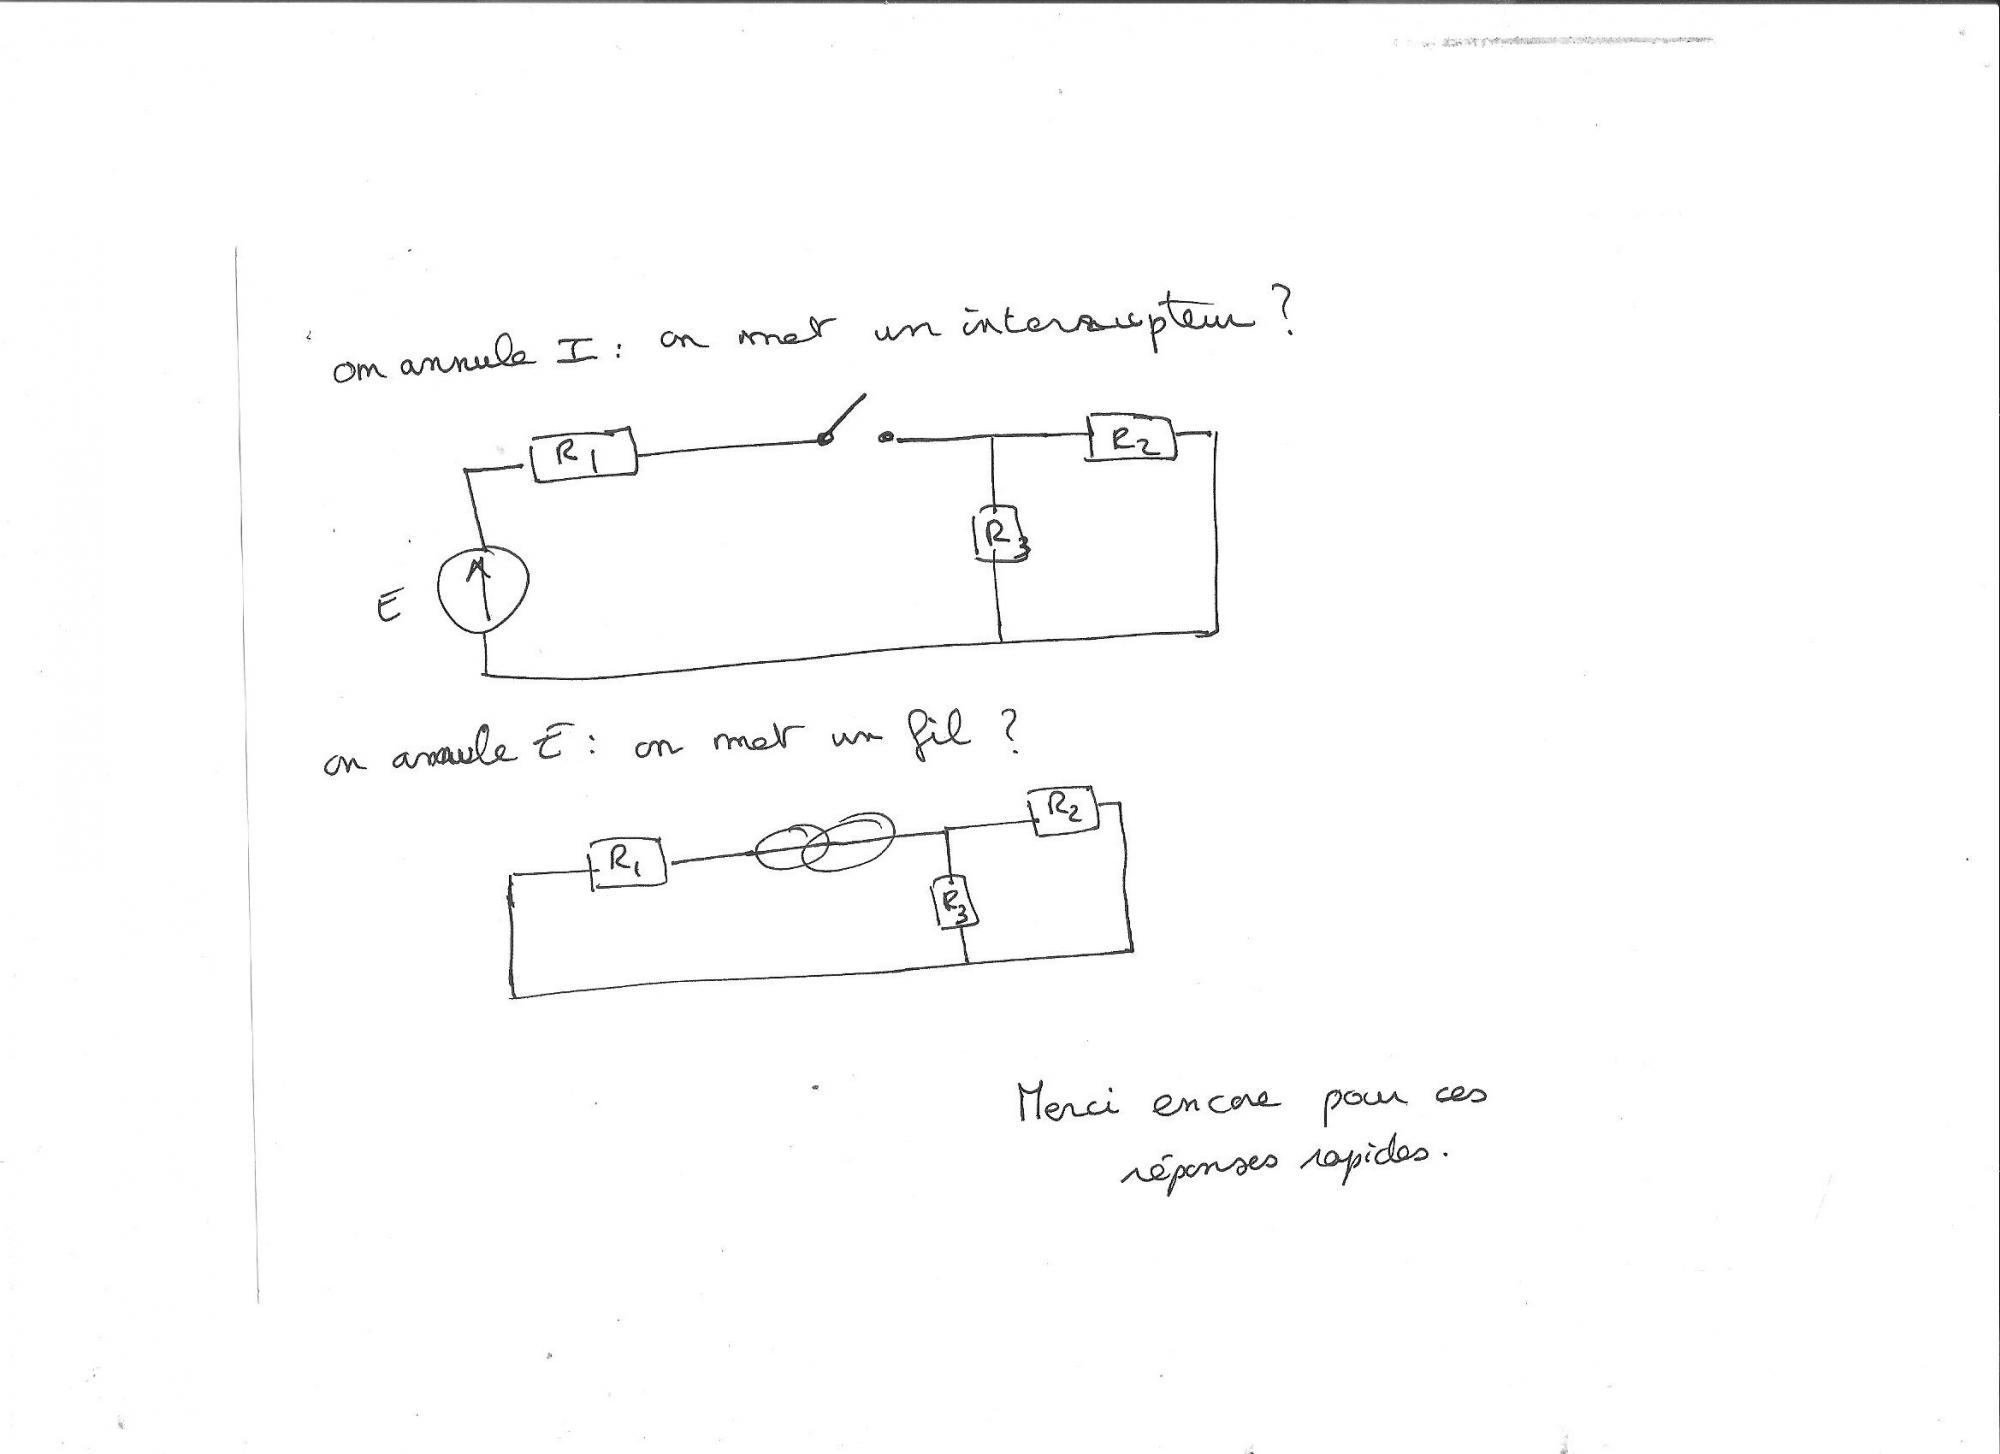 on annule I : on met un interrupteur ?
R1
R2
R3
E
on annule E : on met un fil ?
R1
R2
R3
Merci encore pour ces
réponses rapides.